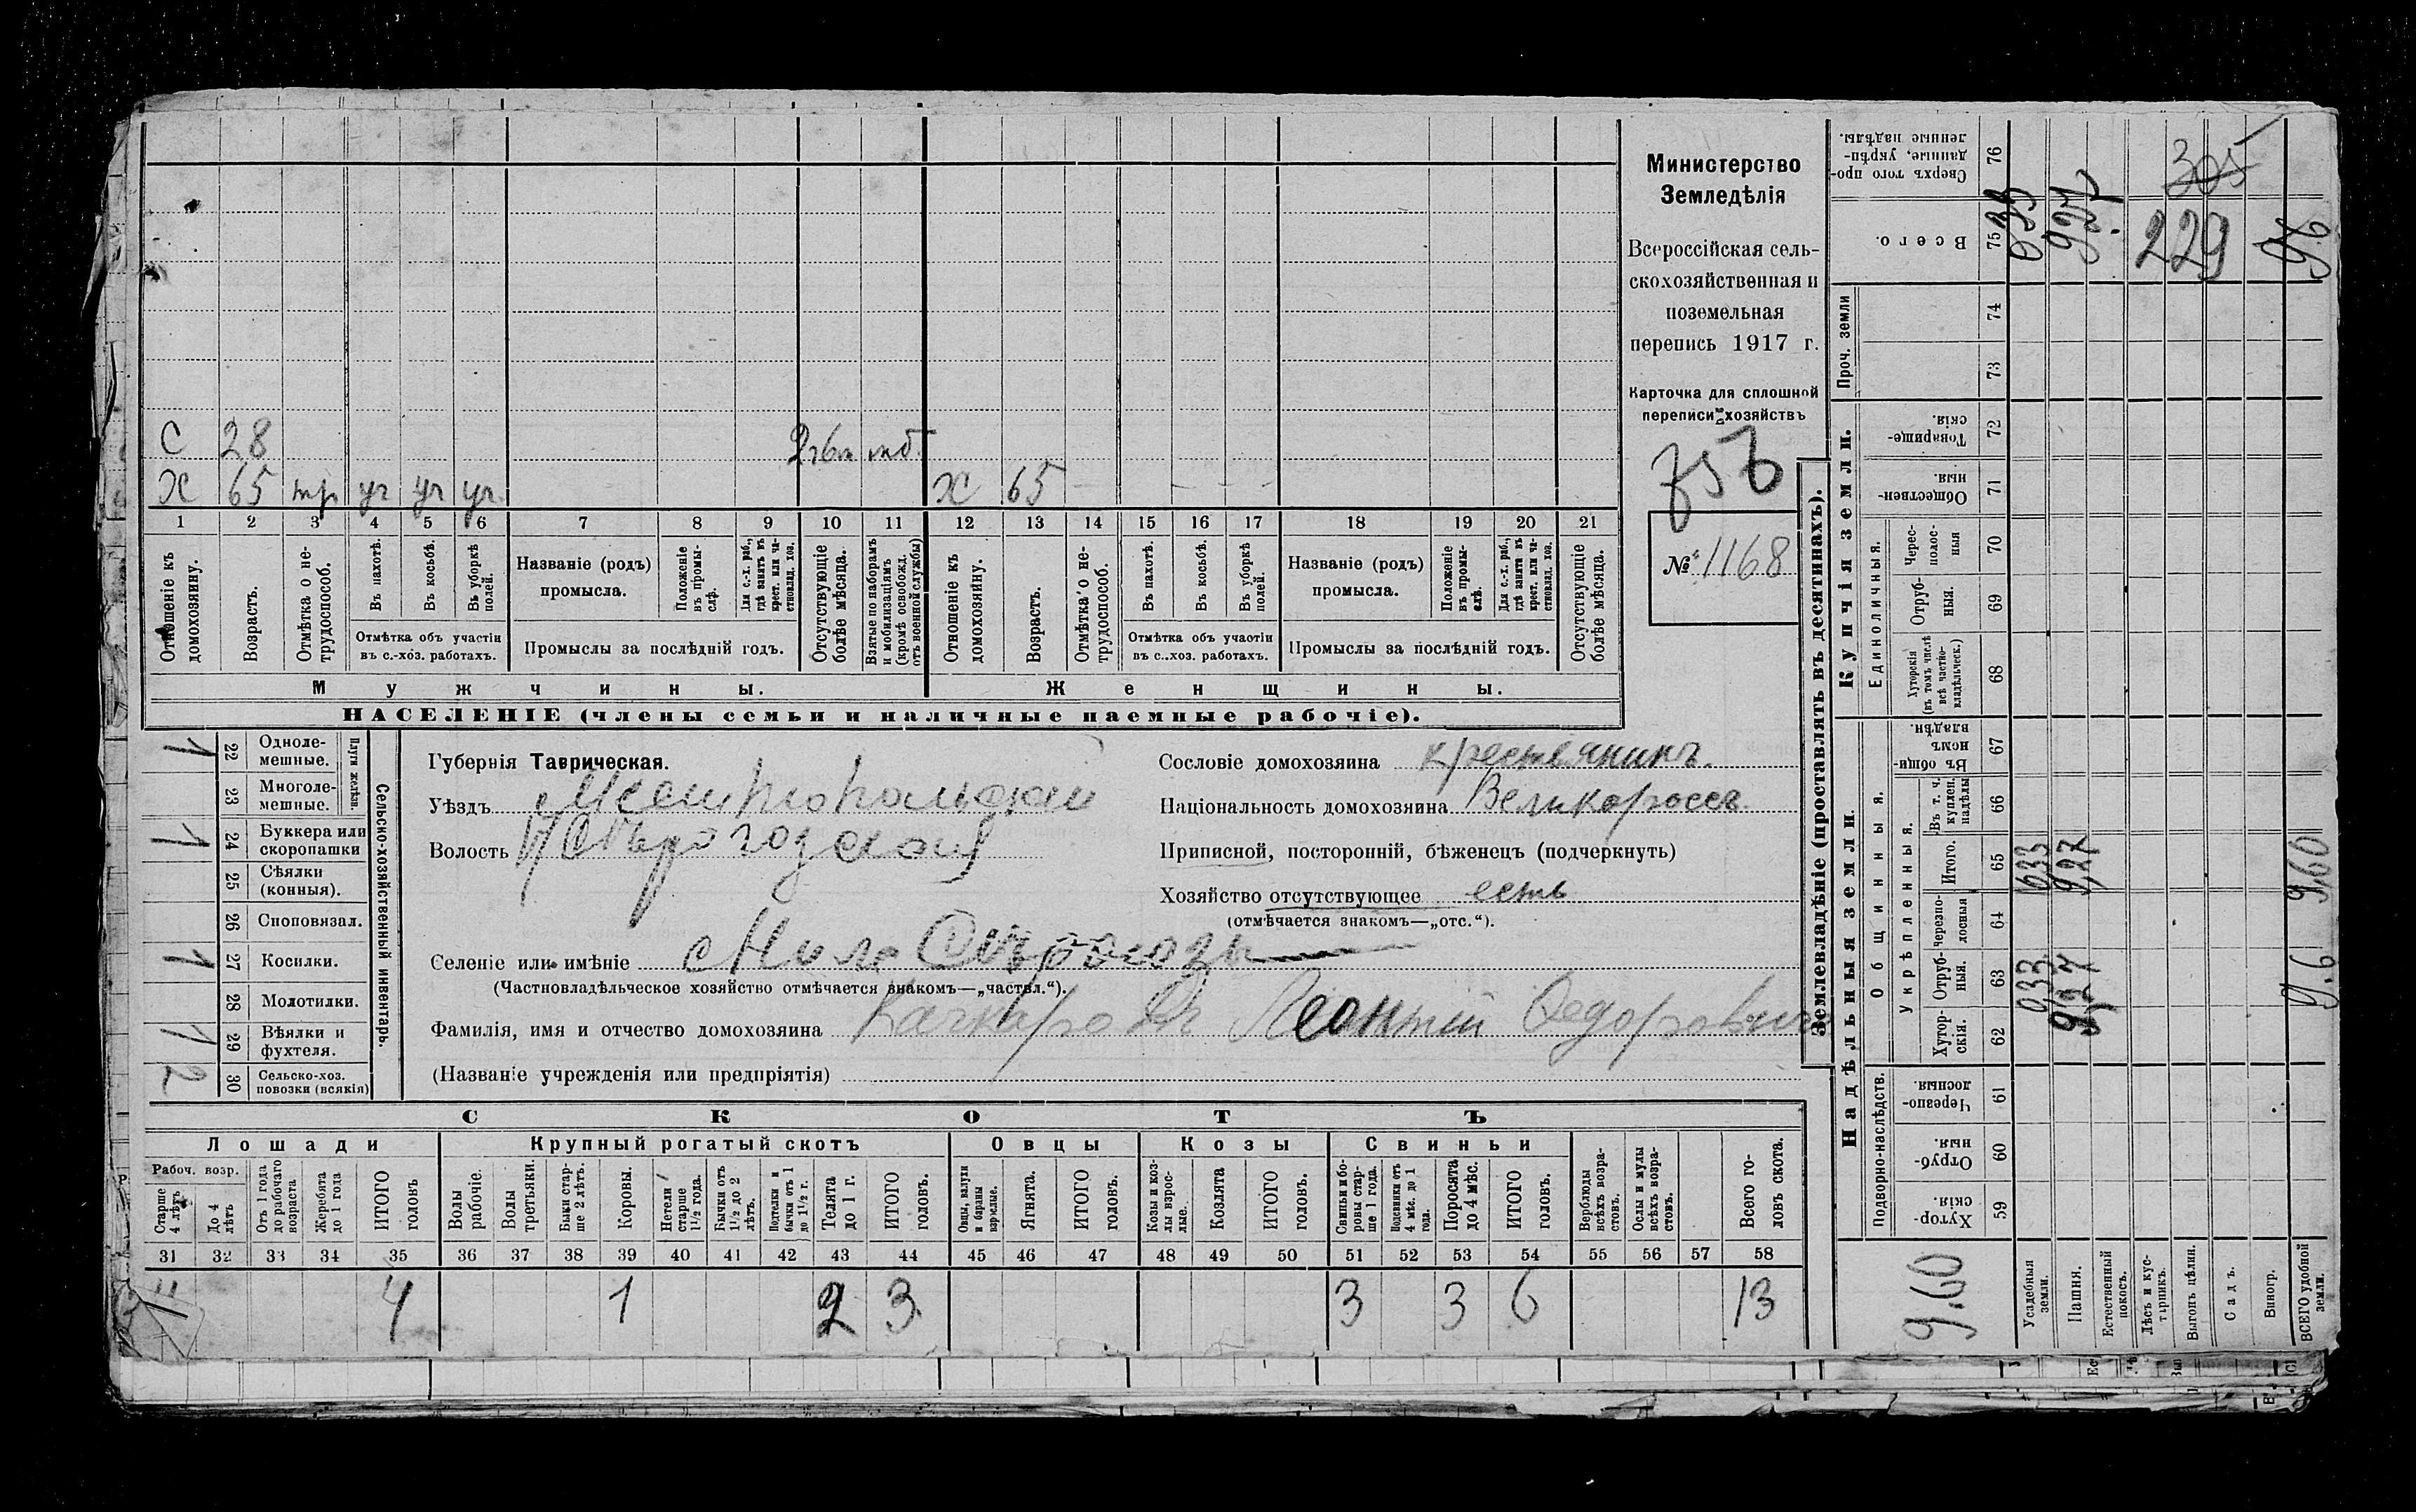 Министерство
Земледѣлія
Всероссійская сель-
скохозяйственная и
поземельная
перепись 1917 г.
Карточка для сплошной
переписи хозяйствъ
№ 1168
С 28
Х 65 тр уч уч уч Х 65
1 2 3 4 5 6 7 8 9 10 11 12 13 14 15 16 17 18 19 20 21
Отношеніе къ домохозяину.
Возрастъ.
Отмѣтка о не-трудоспособ.
Въ пахотѣ.
Въ косьбѣ.
Въ уборкѣ полей.
Отмѣтка объ участіи
въ с.-хоз. работахъ.
Названіе (родъ)
промысла.
Положеніе въ промы-слѣ.
Для с.-х. раб., гдѣ занятъ въ крест. или ча-стновлад. хоз.
Промыслы за послѣдній годъ.
Отсутствующіе болѣе мѣсяца.
Взятые по наборамъ и мобилизаціямъ (кромѣ освобожд. отъ военной службы)
Отношеніе къ домохозяину.
Возрастъ.
Отмѣтка о не-трудоспособ.
Въ пахотѣ.
Въ косьбѣ.
Въ уборкѣ полей.
Отмѣтка объ участіи
въ с.-хоз. работахъ.
Названіе (родъ)
промысла.
Положеніе въ промы-слѣ.
Для с.-х. раб., гдѣ занята въ крест. или ча-стновлад. хоз.
Промыслы за послѣдній годъ.
Отсутствующіе болѣе мѣсяца.
Мужчины. Женщины.
НАСЕЛЕНІЕ (члены семьи и наличные наемные рабочіе).
Сельско-хозяйственный инвентарь.
Плуги желѣзн.
1 22 Одноле-мешные.
23 Многоле-мешные.
1 24 Буккера или скоропашки
25 Сѣялки (конныя).
26 Сноповязал.
1 27 Косилки.
28 Молотилки.
1 29 Вѣялки и фухтеля.
2 30 Сельско-хоз. повозки (всякія)
Губернія Таврическая.
Уѣздъ Мелитопольскій
Волость Н Сѣрогозской
Селеніе или имѣніе Ниж Сѣрогозы
(Частновладѣльческое хозяйство отмѣчается знакомъ—„частвл.“).
Фамилія, имя и отчество домохозяина Качкаровъ Леонтій Федоровичъ
(Названіе учрежденія или предпріятія)
Сословіе домохозяина крестьянинъ.
Національность домохозяина Великороссъ
Приписной, посторонній, бѣженецъ (подчеркнуть)
Хозяйство отсутствующее есть
(отмѣчается знакомъ—„отс.“).
СКОТЪ
Лошади Крупный рогатый скотъ Овцы Козы Свиньи
Рабоч. возр.
Старше 4 лѣтъ
До 4 лѣтъ
Отъ 1 года до рабочаго возраста
Жеребята до 1 года
ИТОГО головъ
Волы рабочіе.
Волы третьяки.
Быки стар-ше 2 лѣтъ.
Коровы.
Нетели старше 1½ года.
Бычки отъ 1½ до 2 лѣтъ.
Подтелки и бычки отъ 1 до 1½ г.
Телята до 1 г.
ИТОГО головъ.
Овцы, валухи и бараны взрослые.
Ягнята.
ИТОГО головъ.
Козы и коз-лы взрос-лые.
Козлята
ИТОГО головъ.
Свиньи и бо-ровы стар-ше 1 года.
Подсвинки отъ 4 мѣс. до 1 года.
Поросята до 4 мѣс.
ИТОГО головъ.
Верблюды всѣхъ возра-стовъ.
Ослы и мулы всѣхъ возра-стовъ.
Всего го-ловъ скота.
31 32 33 34 35 36 37 38 39 40 41 42 43 44 45 46 47 48 49 50 51 52 53 54 55 56 57 58
4 1 2 3 3 3 6 13
Землевладѣніе (проставлять въ десятинахъ).
Надѣльныя земли. Купчія земли. Проч. земли
Подворно-наслѣдств.
Общинныя.
Укрѣпленныя.
Единоличныя.
Хутор-скія. 59
Отруб-ныя. 60
Черезпо-лосныя. 61
Хутор-скія. 62
Отруб-ныя. 63
Черезпо-лосныя 64
Итого. 65
Въ т. ч. куплен. надѣлы 66
Въ общин-номъ владѣн. 67
Хуторскія (въ томъ числѣ всѣ частно-владѣльческ.) 68
Отруб-ныя. 69
Черес-полос-ныя 70
Обществен-ныя. 71
Товарище-скія. 72
73
74
Всего. 75
Сверхъ того про-данные, укрѣп-ленные надѣлы. 76
Усадебныя земли. 033 033 033
Пашня. 9,27 9,27 927
Естественный покосъ.
Лѣсъ и кус-тарникъ.
Выгонъ цѣлин.
Садъ.
Виногр.
ВСЕГО удобной земли. 9.6 9,60 9,6
9,60
305
229